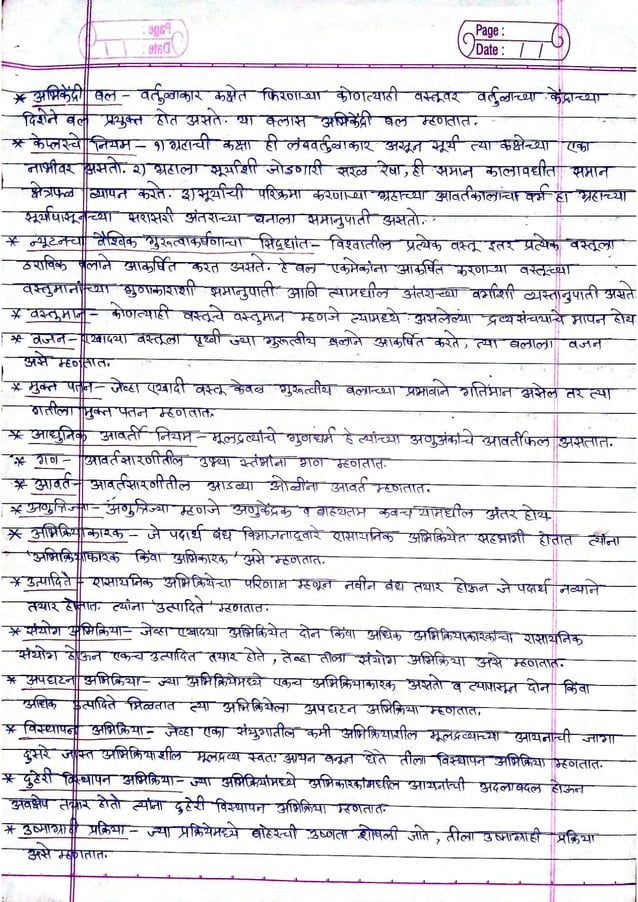 Page :
Date :
* अभिकेंद्री बल – वर्तुळाकार कक्षेत फिरणाऱ्या कोणत्याही वस्तूवर वर्तुळाच्या केंद्राच्या
दिशेने बल प्रयुक्त होत असते. या बलास अभिकेंद्री बल म्हणतात.
* केप्लरचे नियम – १) ग्रहाची कक्षा ही लंबवर्तुळाकार असून सूर्य त्या कक्षेच्या एका
नाभीवर असतो. २) ग्रहाला सूर्याशी जोडणारी सरळ रेषा, ही समान कालावधीत समान
क्षेत्रफळ व्यापन करते. ३) सूर्याची परिक्रमा करणाऱ्या ग्रहाच्या आवर्तकालाचा वर्ग हा ग्रहाच्या
सूर्यापासूनच्या सरासरी अंतराच्या घनाला समानुपाती असतो.
* न्यूटनचा वैश्विक गुरुत्वाकर्षणाचा सिद्धांत – विश्वातील प्रत्येक वस्तू इतर प्रत्येक वस्तूला
ठराविक बलाने आकर्षित करत असते. हे बल एकमेकांना आकर्षित करणाऱ्या वस्तूंच्या
वस्तुमानांच्या गुणाकाराशी समानुपाती आणि त्यामधील अंतराच्या वर्गाशी व्यस्तानुपाती असते
* वस्तुमान – कोणत्याही वस्तूचे वस्तुमान म्हणजे त्यामध्ये असलेल्या द्रव्यसंचयाचे मापन होय
* वजन – एखादया वस्तूला पृथ्वी ज्या गुरुत्वीय बलाने आकर्षित करते, त्या बलाला वजन
असे म्हणतात.
* मुक्त पतन – जेव्हा एखादी वस्तू केवळ गुरुत्वीय बलाच्या प्रभावाने गतिमान असेल तर त्या
गतीला मुक्त पतन म्हणतात.
* आधुनिक आवर्ती नियम – मूलद्रव्यांचे गुणधर्म हे त्यांच्या अणुअंकांचे आवर्तीफल असतात.
* गण – आवर्तसारणीतील उभ्या स्तंभांना गण म्हणतात.
* आवर्त – आवर्तसारणीतील आडव्या ओळींना आवर्त म्हणतात.
* अणुत्रिज्या – अणुत्रिज्या म्हणजे अणुकेंद्रक व बाह्यतम कवच यामधील अंतर होय
* अभिक्रियाकारक – जे पदार्थ बंध विभाजनाद्वारे रासायनिक अभिक्रियेत सहभागी होतात त्यांना
'अभिक्रियाकारक किंवा अभिकारक' असे म्हणतात.
* उत्पादिते – रासायनिक अभिक्रियेचा परिणाम म्हणून नवीन बंध तयार होऊन जे पदार्थ नव्याने
तयार होतात. त्यांना 'उत्पादिते' म्हणतात.
* संयोग अभिक्रिया – जेव्हा एखादया अभिक्रियेत दोन किंवा अधिक अभिक्रियाकारकांचा रासायनिक
संयोग होऊन एकच उत्पादित तयार होते, तेव्हा तीला संयोग अभिक्रिया असे म्हणतात.
* अपघटन अभिक्रिया – ज्या अभिक्रियेमध्ये एकच अभिक्रियाकारक असतो व त्यापासून दोन किंवा
अधिक उत्पादिते मिळतात त्या अभिक्रियेला अपघटन अभिक्रिया म्हणतात.
* विस्थापन अभिक्रिया – जेव्हा एका संयुगातील कमी अभिक्रियाशील मूलद्रव्याच्या आयनाची जागा
दुसरे जास्त अभिक्रियाशील मूलद्रव्य स्वतः आयन बनून घेते तीला विस्थापन अभिक्रिया म्हणतात.
* दुहेरी विस्थापन अभिक्रिया – ज्या अभिक्रियांमध्ये अभिकारकांमधील आयनांची अदलाबदल होऊन
अवक्षेप तयार होतो त्यांना दुहेरी विस्थापन अभिक्रिया म्हणतात.
* उष्माग्राही प्रक्रिया – ज्या प्रक्रियेमध्ये बाहेरची उष्णता शोषली जाते, तीला उष्माग्राही प्रक्रिया
असे म्हणतात.